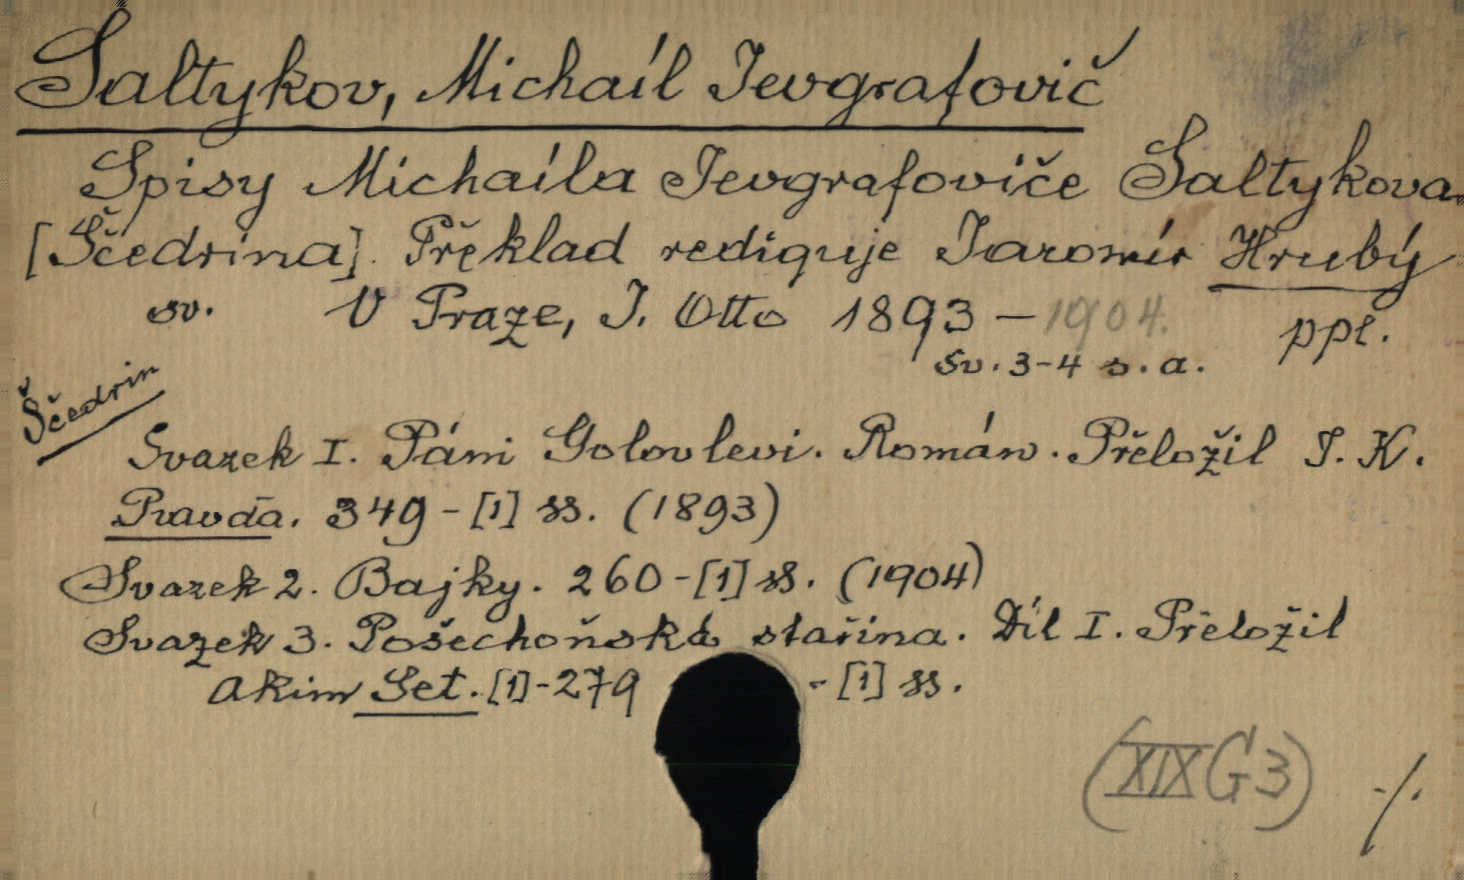 Saltykov, Michaíl Jevgrafovič
Spisy Michaíla Jevgrafoviče Saltykova
[Ščedrina]. Překlad rediguje Jaromír Hrubý
sv. V Praze, J. Otto 1893 - 1904. ppl.
sv. 3-4 s.a.
Ščedrin
Svazek I. Páni Golovlevi. Román. Přeložil J. K.
Pravda. 349 - [1] ss. (1893)
Svazek 2. Bajky. 260 - [1] ss. (1904)
Svazek 3. Pošechoňská stařina. Díl I. Přeložil
Akim Set. [1] - 279 - [1] ss.
(XIX G 3) ./.